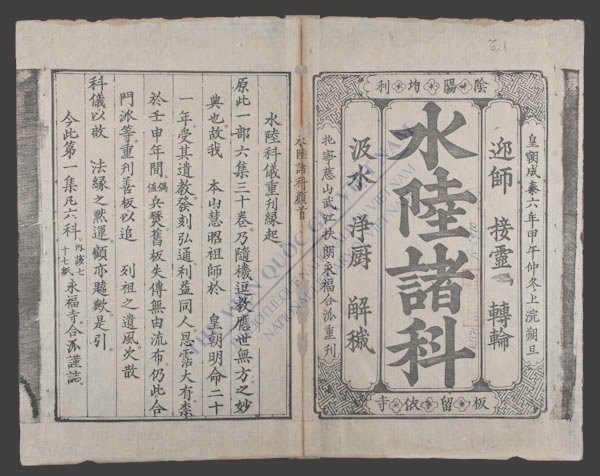 陰陽均利
皇朝成泰六年甲午仲冬上浣朔旦
迎師 接靈 轉輪
水陸諸科
汲水 淨厨 解穢
北寧慈山武江扶朗永福合派重刊
板留依寺
水陸諸科
水陸科儀重刊緣起
原此一部六集三十卷乃隨機逗教應世無方之妙
典也故我 本山慧昭祖師於 皇朝明命二十
一年受其遺教發刻弘通利益同人恩霑大有柰
於壬申年間偶值兵燹舊板失傳無由流布仍此合
門派等重刊善板以追 列祖之遺風次散
科儀以故 法緣之默運顧亦歟是引
今此第一集凡六科內該七十七紙永福寺合派謹誌
THƯ VIỆN QUỐC GIA VIỆT NAM
BIBLIOTHÈQUE NATIONALE DU VIETNAM
NATIONAL LIBRARY OF VIETNAM